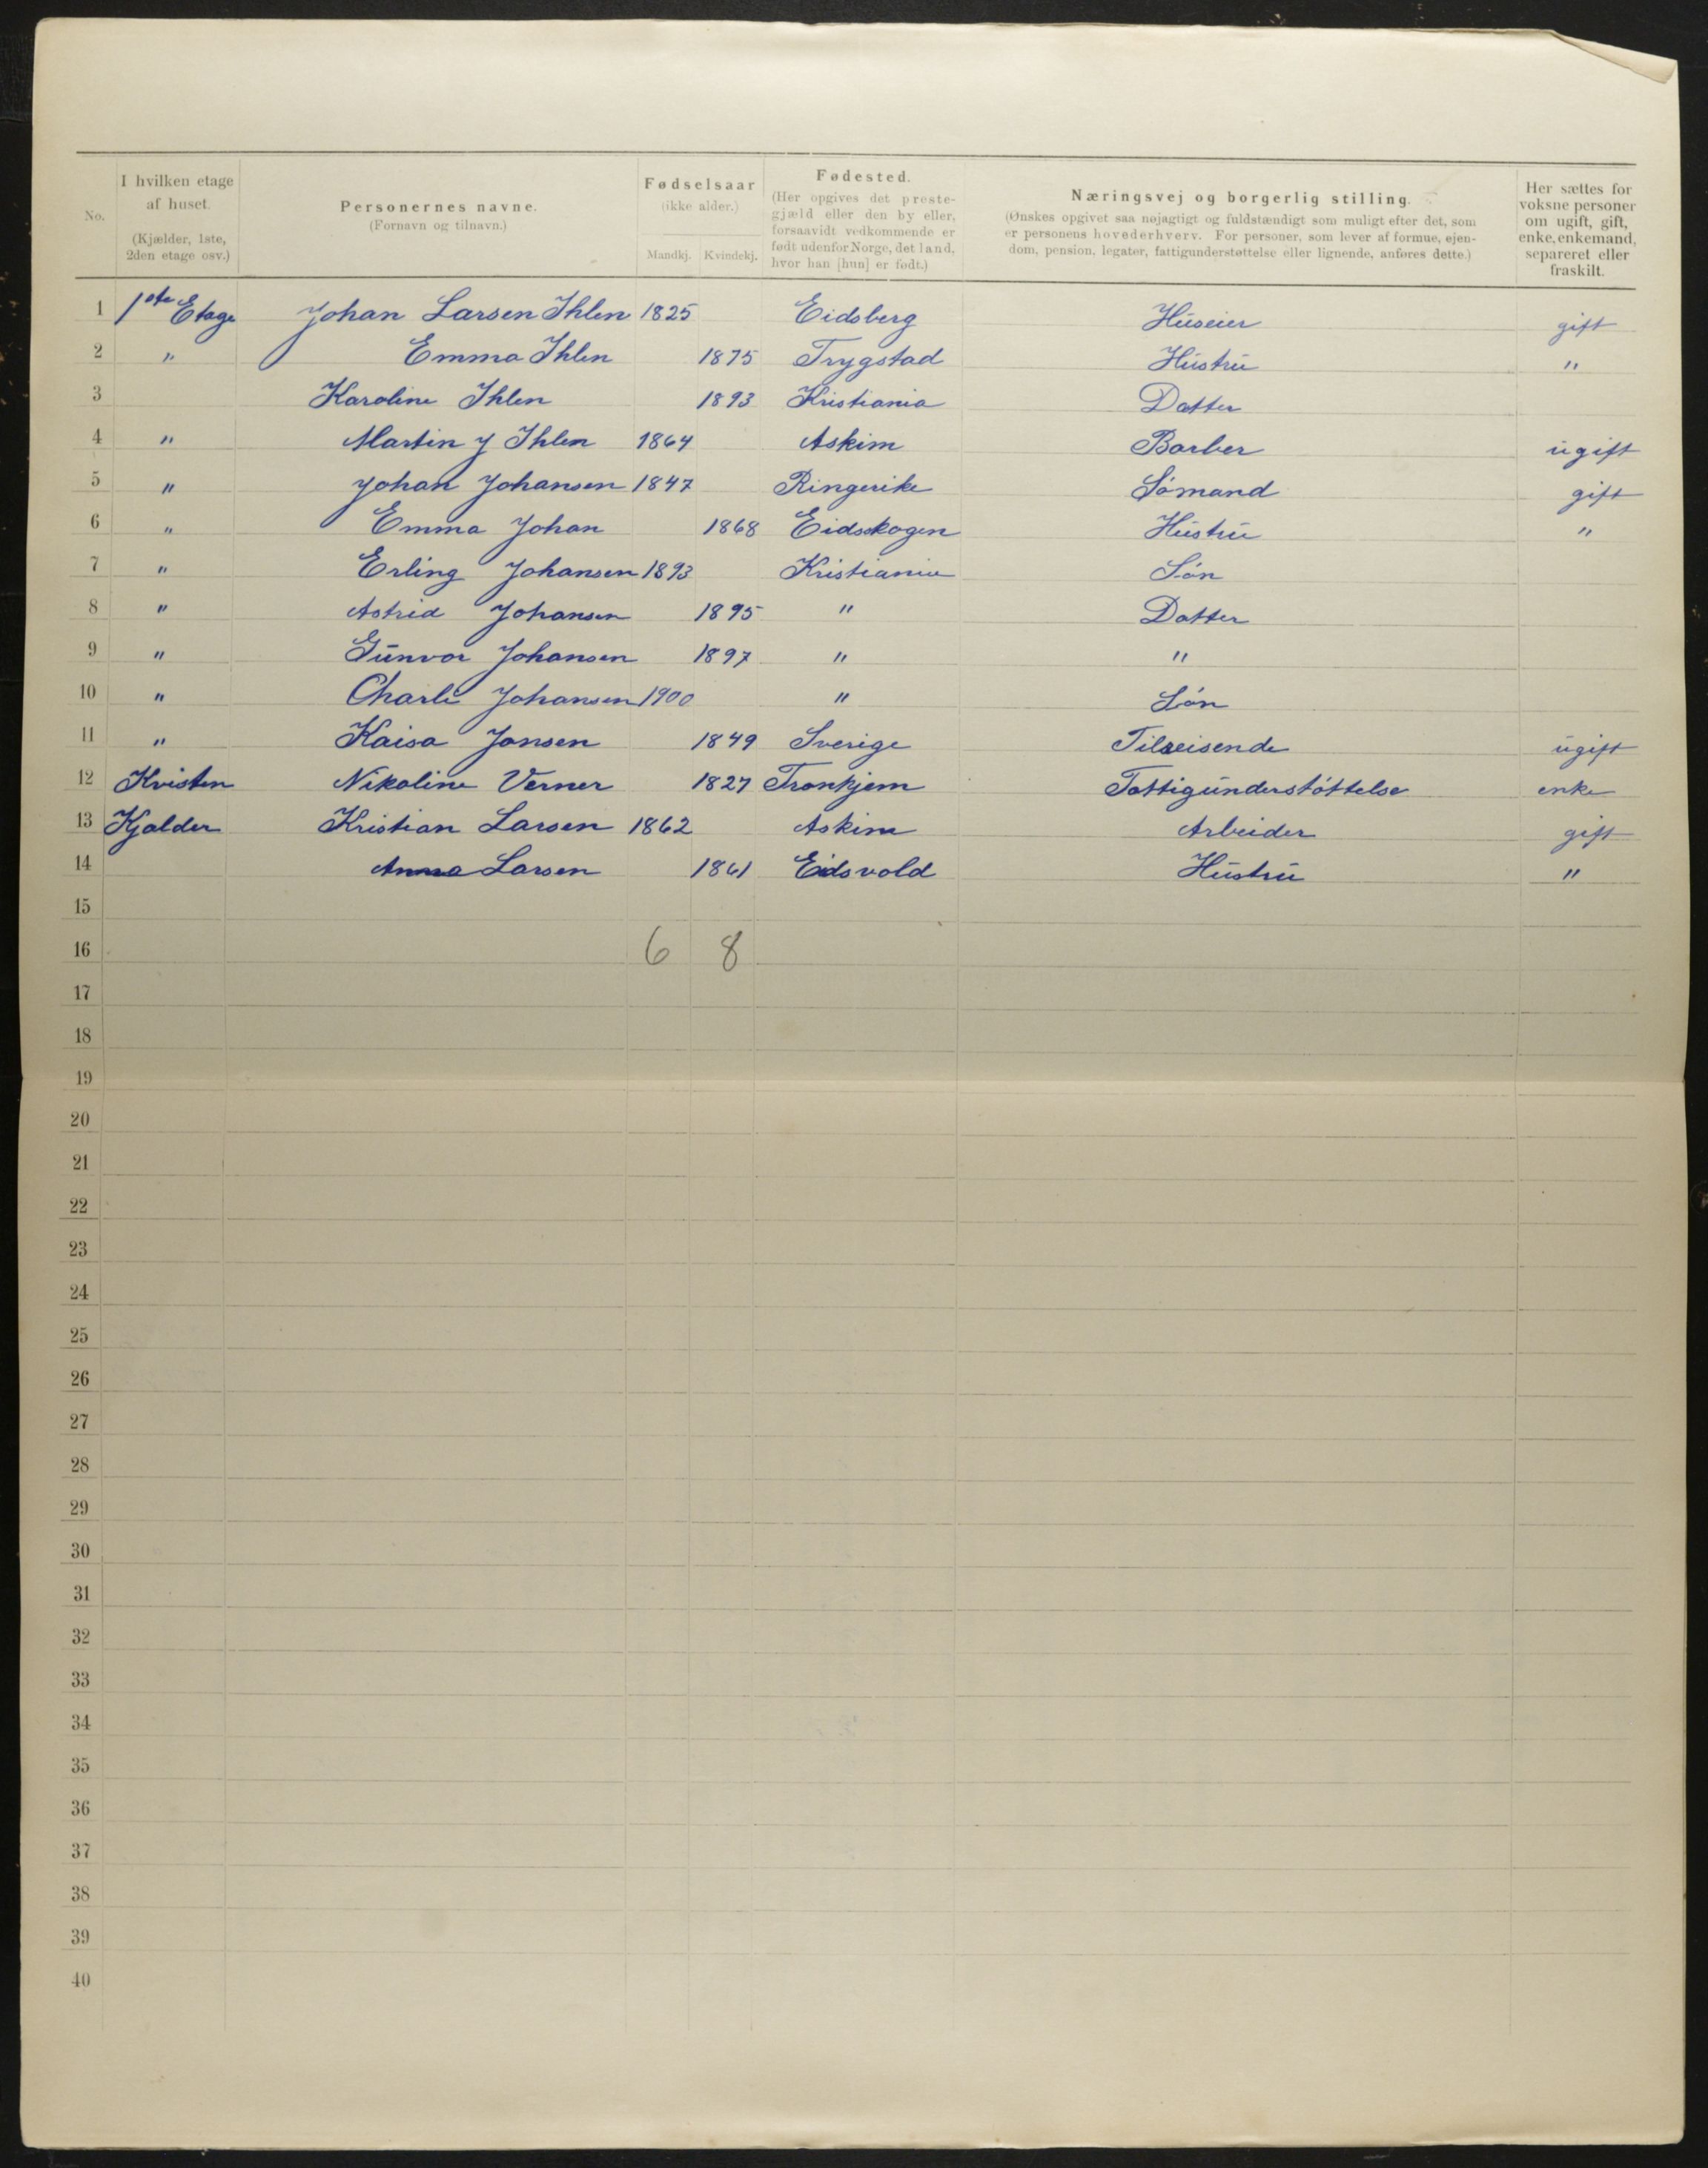 No.
I hvilken etage af huset.
(Kjælder, 1ste, 2den etage osv.)
Personernes navne.
(Fornavn og tilnavn.)
Fødselsaar
(ikke alder.)
Mandkj. Kvindekj.
Fødested.
(Her opgives det prestegjæld eller den by eller, forsaavidt vedkommende er født udenfor Norge, det land, hvor han [hun] er født.)
Næringsvej og borgerlig stilling.
(Ønskes opgivet saa nøjagtigt og fuldstændigt som muligt efter det, som er personens hovederhverv. For personer, som lever af formue, ejendom, pension, legater, fattigunderstøttelse eller lignende, anføres dette.)
Her sættes for voksne personer om ugift, gift, enke, enkemand, separeret eller fraskilt.
1 1ste Etage Johan Larsen Ihlen 1825 Eidsberg Huseier gift
2 " Emma Ihlen 1875 Trygstad Hustru "
3 Karoline Ihlen 1893 Kristiania Datter
4 " Martin J Ihlen 1864 Askim Barber ugift
5 " Johan Johansen 1847 Ringerike Sømand gift
6 " Emma Johan 1868 Eidskogen Hustru "
7 " Erling Johansen 1893 Kristiania Søn
8 " Astrid Johansen 1895 " Datter
9 " Gunvor Johansen 1897 " "
10 " Charli Johansen 1900 " Søn
11 " Kaisa Jansen 1849 Sverige Tilreisende ugift
12 Kvisten Nikoline Verner 1827 Tronhjem Fattigunderstøttelse enke
13 Kjalder Kristian Larsen 1862 Askim Arbeider gift
14 Anna Larsen 1861 Eidsvold Hustru "
15
16 6 8
17
18
19
20
21
22
23
24
25
26
27
28
29
30
31
32
33
34
35
36
37
38
39
40